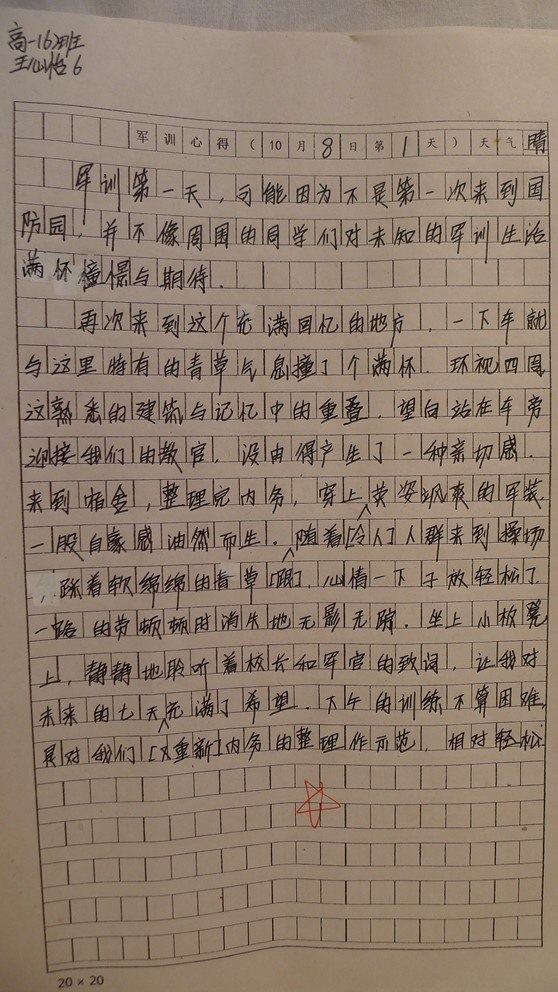 高一(6)班
王心怡 6
军训心得（10月8日第1天）天气晴
军训第一天，可能因为不是第一次来到国
防园，并不像周围的同学们对未知的军训生活
满怀憧憬与期待.
再次来到这个充满回忆的地方，一下车就
与这里特有的青草气息撞了个满怀.环视四周,
这熟悉的建筑与记忆中的重叠.望向站在车旁
迎接我们的教官，没由得产生了一种亲切感.
来到宿舍，整理完内务，穿上英姿飒爽的军装
一股自豪感油然而生.随着[令人]人群来到操场
踩着软绵绵的青草[跟],心情一下子放轻松了
一路的劳顿顿时消失地无影无踪.坐上小板凳
上，静静地聆听着校长和军官的致词，让我对
未来的七天充满了希望.下午的训练不算困难,
是对我们[又重新]内务的整理作示范，相对轻松.
20×20